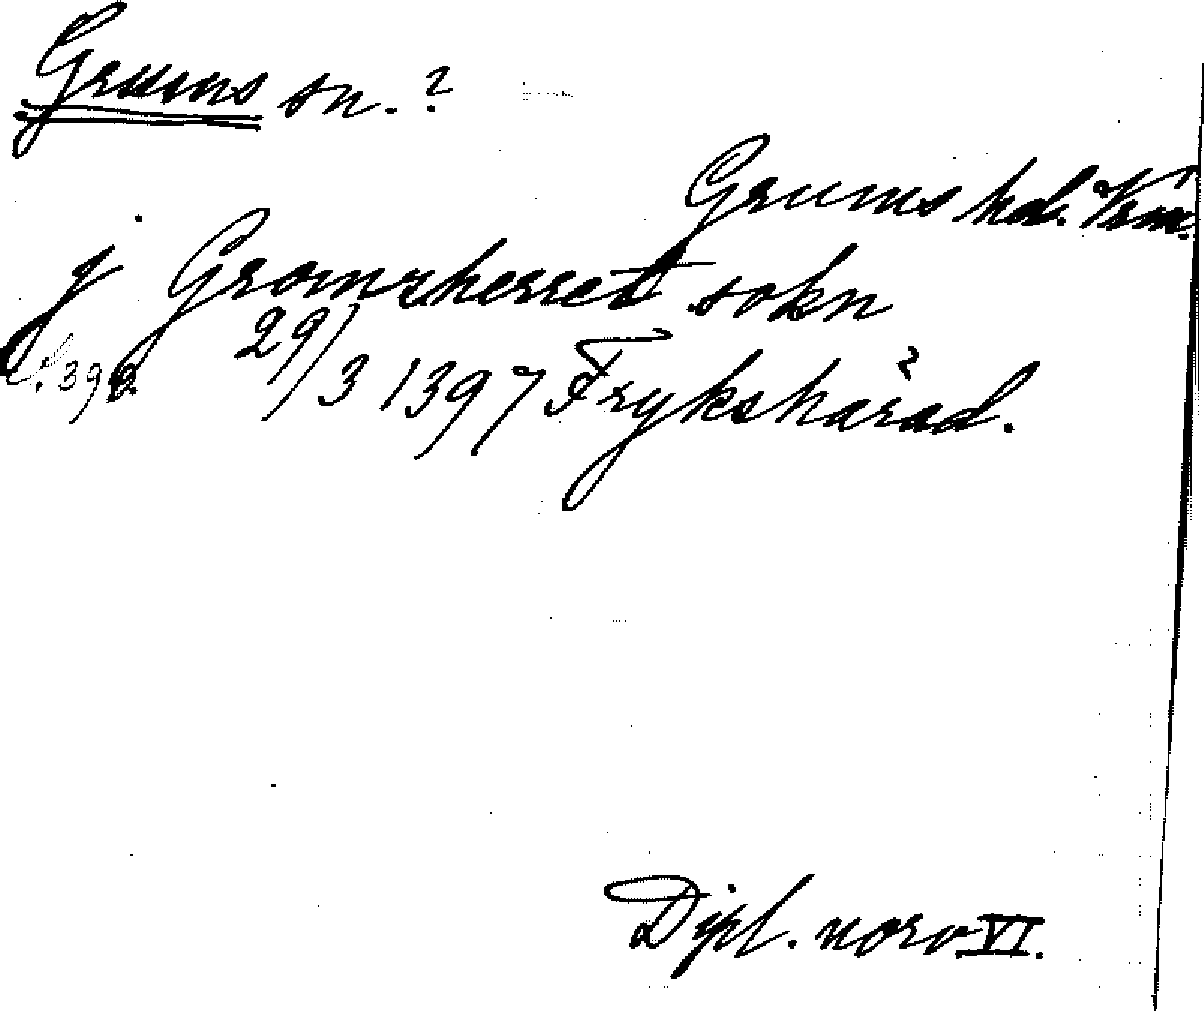 Grums sn. ?
Grums hd. Vrm.
j Gromsherret sokn
s. 398. 29/3 1397 Frykshärad.
Dipl. norv VI.